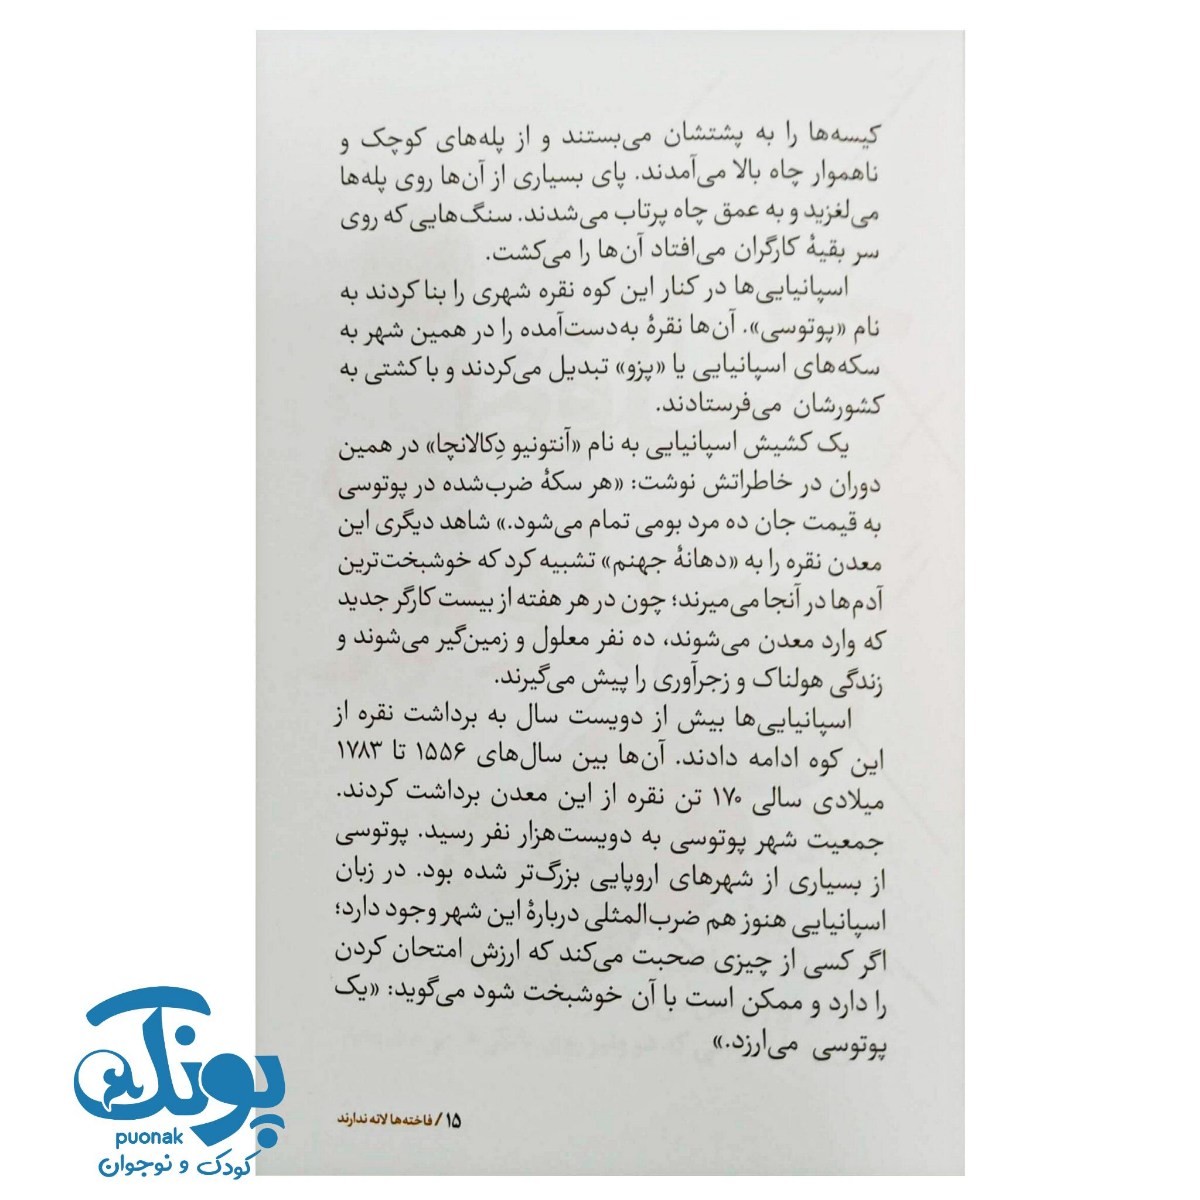 کیسه‌ها را به پشتشان می‌بستند و از پله‌های کوچک و
ناهموار چاه بالا می‌آمدند. پای بسیاری از آن‌ها روی پله‌ها
می‌لغزید و به عمق چاه پرتاب می‌شدند. سنگ‌هایی که روی
سر بقیهٔ کارگران می‌افتاد آن‌ها را می‌کشت.
اسپانیایی‌ها در کنار این کوه نقره شهری را بنا کردند به
نام «پوتوسی». آن‌ها نقرهٔ به‌دست‌آمده را در همین شهر به
سکه‌های اسپانیایی یا «پزو» تبدیل می‌کردند و با کشتی به
کشورشان می‌فرستادند.
یک کشیش اسپانیایی به نام «آنتونیو دِکالانچا» در همین
دوران در خاطراتش نوشت: «هر سکهٔ ضرب‌شده در پوتوسی
به قیمت جان ده مرد بومی تمام می‌شود.» شاهد دیگری این
معدن نقره را به «دهانهٔ جهنم» تشبیه کرد که خوشبخت‌ترین
آدم‌ها در آنجا می‌میرند؛ چون در هر هفته از بیست کارگر جدید
که وارد معدن می‌شوند، ده نفر معلول و زمین‌گیر می‌شوند و
زندگی هولناک و زجرآوری را پیش می‌گیرند.
اسپانیایی‌ها بیش از دویست سال به برداشت نقره از
این کوه ادامه دادند. آن‌ها بین سال‌های ۱۵۵۶ تا ۱۷۸۳
میلادی سالی ۱۷۰ تن نقره از این معدن برداشت کردند.
جمعیت شهر پوتوسی به دویست‌هزار نفر رسید. پوتوسی
از بسیاری از شهرهای اروپایی بزرگ‌تر شده بود. در زبان
اسپانیایی هنوز هم ضرب‌المثلی دربارهٔ این شهر وجود دارد؛
اگر کسی از چیزی صحبت می‌کند که ارزش امتحان کردن
را دارد و ممکن است با آن خوشبخت شود می‌گوید: «یک
پوتوسی می‌ارزد.»
۱۵ / فاخته‌ها لانه ندارند
پونک
puonak
کودک و نوجوان